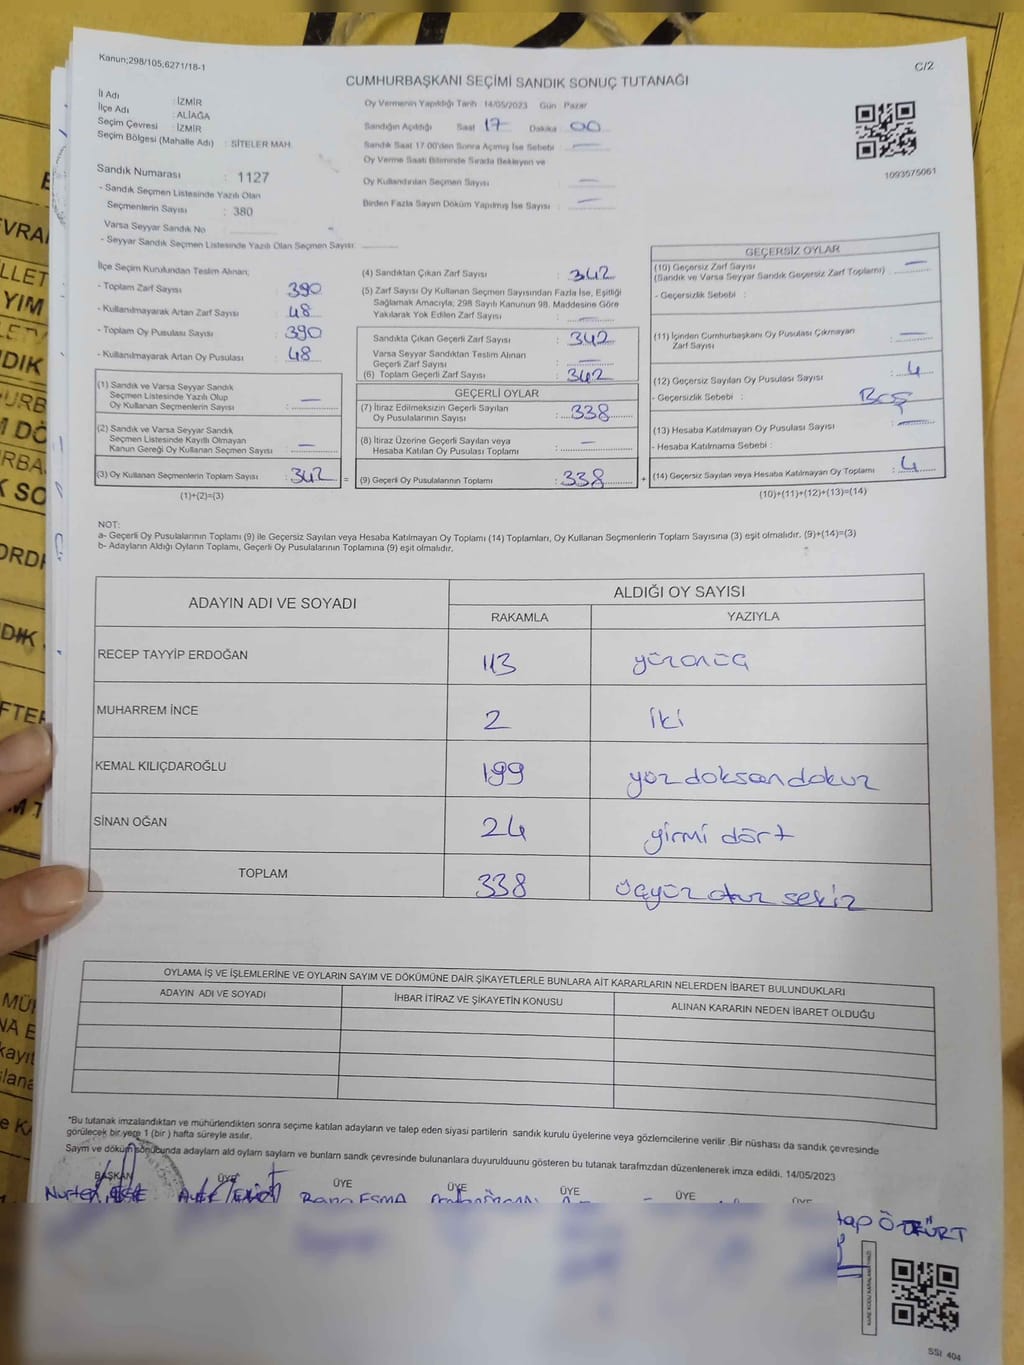 Kanun;298/105;6271/18-1
C/2
CUMHURBAŞKANI SEÇİMİ SANDIK SONUÇ TUTANAĞI
İl Adı : İZMİR
İlçe Adı : ALİAĞA
Seçim Çevresi : İZMİR
Seçim Bölgesi (Mahalle Adı) : SİTELER MAH.
Oy Vermenin Yapıldığı Tarih 14/05/2023 Gün Pazar
Sandığın Açıldığı Saat 17 Dakika 00
Sandık Saat 17.00'den Sonra Açmış İse Sebebi : —
Oy Verme Saati Bitiminde Sırada Bekleyen ve
Oy Kullandırılan Seçmen Sayısı : —
Birden Fazla Sayım Döküm Yapılmış İse Sayısı : —
1093575061
Sandık Numarası : 1127
- Sandık Seçmen Listesinde Yazılı Olan
Seçmenlerin Sayısı : 380
Varsa Seyyar Sandık No
- Seyyar Sandık Seçmen Listesinde Yazılı Olan Seçmen Sayısı:
İlçe Seçim Kurulundan Teslim Alınan;
- Toplam Zarf Sayısı : 390
- Kullanılmayarak Artan Zarf Sayısı : 48
- Toplam Oy Pusulası Sayısı : 390
- Kullanılmayarak Artan Oy Pusulası : 48
(1) Sandık ve Varsa Seyyar Sandık
Seçmen Listesinde Yazılı Olup
Oy Kullanan Seçmenlerin Sayısı : —
(2) Sandık ve Varsa Seyyar Sandık
Seçmen Listesinde Kayıtlı Olmayan
Kanun Gereği Oy Kullanan Seçmen Sayısı : —
(3) Oy Kullanan Seçmenlerin Toplam Sayısı : 342 =
(1)+(2)=(3)
(4) Sandıktan Çıkan Zarf Sayısı : 342
(5) Zarf Sayısı Oy Kullanan Seçmen Sayısından Fazla İse, Eşitliği
Sağlamak Amacıyla; 298 Sayılı Kanunun 98. Maddesine Göre
Yakılarak Yok Edilen Zarf Sayısı : —
Sandıkta Çıkan Geçerli Zarf Sayısı : 342
Varsa Seyyar Sandıktan Teslim Alınan
Geçerli Zarf Sayısı : —
(6) Toplam Geçerli Zarf Sayısı : 342
GEÇERLİ OYLAR
(7) İtiraz Edilmeksizin Geçerli Sayılan
Oy Pusulalarının Sayısı : 338
(8) İtiraz Üzerine Geçerli Sayılan veya
Hesaba Katılan Oy Pusulası Toplamı : —
(9) Geçerli Oy Pusulalarının Toplamı : 338 +
GEÇERSİZ OYLAR
(10) Geçersiz Zarf Sayısı
(Sandık ve Varsa Seyyar Sandık Geçersiz Zarf Toplamı) : —
- Geçersizlik Sebebi :
(11) İçinden Cumhurbaşkanı Oy Pusulası Çıkmayan
Zarf Sayısı : —
(12) Geçersiz Sayılan Oy Pusulası Sayısı : 4
- Geçersizlik Sebebi : Boş
(13) Hesaba Katılmayan Oy Pusulası Sayısı : —
- Hesaba Katılmama Sebebi :
(14) Geçersiz Sayılan veya Hesaba Katılmayan Oy Toplamı : 4
(10)+(11)+(12)+(13)=(14)
NOT:
a- Geçerli Oy Pusulalarının Toplamı (9) ile Geçersiz Sayılan veya Hesaba Katılmayan Oy Toplamı (14) Toplamları, Oy Kullanan Seçmenlerin Toplam Sayısına (3) eşit olmalıdır. (9)+(14)=(3)
b- Adayların Aldığı Oyların Toplamı, Geçerli Oy Pusulalarının Toplamına (9) eşit olmalıdır.
ADAYIN ADI VE SOYADI
ALDIĞI OY SAYISI
RAKAMLA YAZIYLA
RECEP TAYYİP ERDOĞAN 113 yüzonüç
MUHARREM İNCE 2 iki
KEMAL KILIÇDAROĞLU 199 yüz doksan dokuz
SİNAN OĞAN 24 yirmi dört
TOPLAM 338 üçyüz otuz sekiz
OYLAMA İŞ VE İŞLEMLERİNE VE OYLARIN SAYIM VE DÖKÜMÜNE DAİR ŞİKAYETLERLE BUNLARA AİT KARARLARIN NELERDEN İBARET BULUNDUKLARI
ADAYIN ADI VE SOYADI
İHBAR İTİRAZ VE ŞİKAYETİN KONUSU
ALINAN KARARIN NEDEN İBARET OLDUĞU
*Bu tutanak imzalandıktan ve mühürlendikten sonra seçime katılan adayların ve talep eden siyasi partilerin sandık kurulu üyelerine veya gözlemcilerine verilir .Bir nüshası da sandık çevresinde
görülecek bir yere 1 (bir ) hafta süreyle asılır.
Sayım ve döküm sonucunda adayların aldı oyların sayıların ve bunların sandk çevresinde bulunanlara duyurulduunu gösteren bu tutanak tarafmzdan düzenlenerek imza edildi. 14/05/2023
BAŞKAN ÜYE ÜYE ÜYE ÜYE ÜYE ÜYE
Rana ESMA
SSI 404